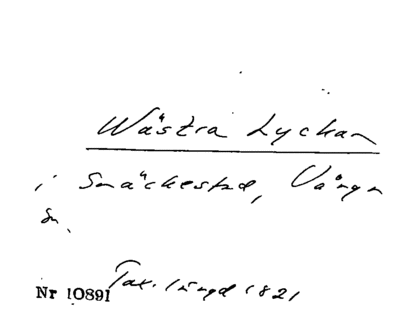 Wästra Lyckan
i Snäckestad, Vånga
sn.
Tax. längd 1821
Nr 10891